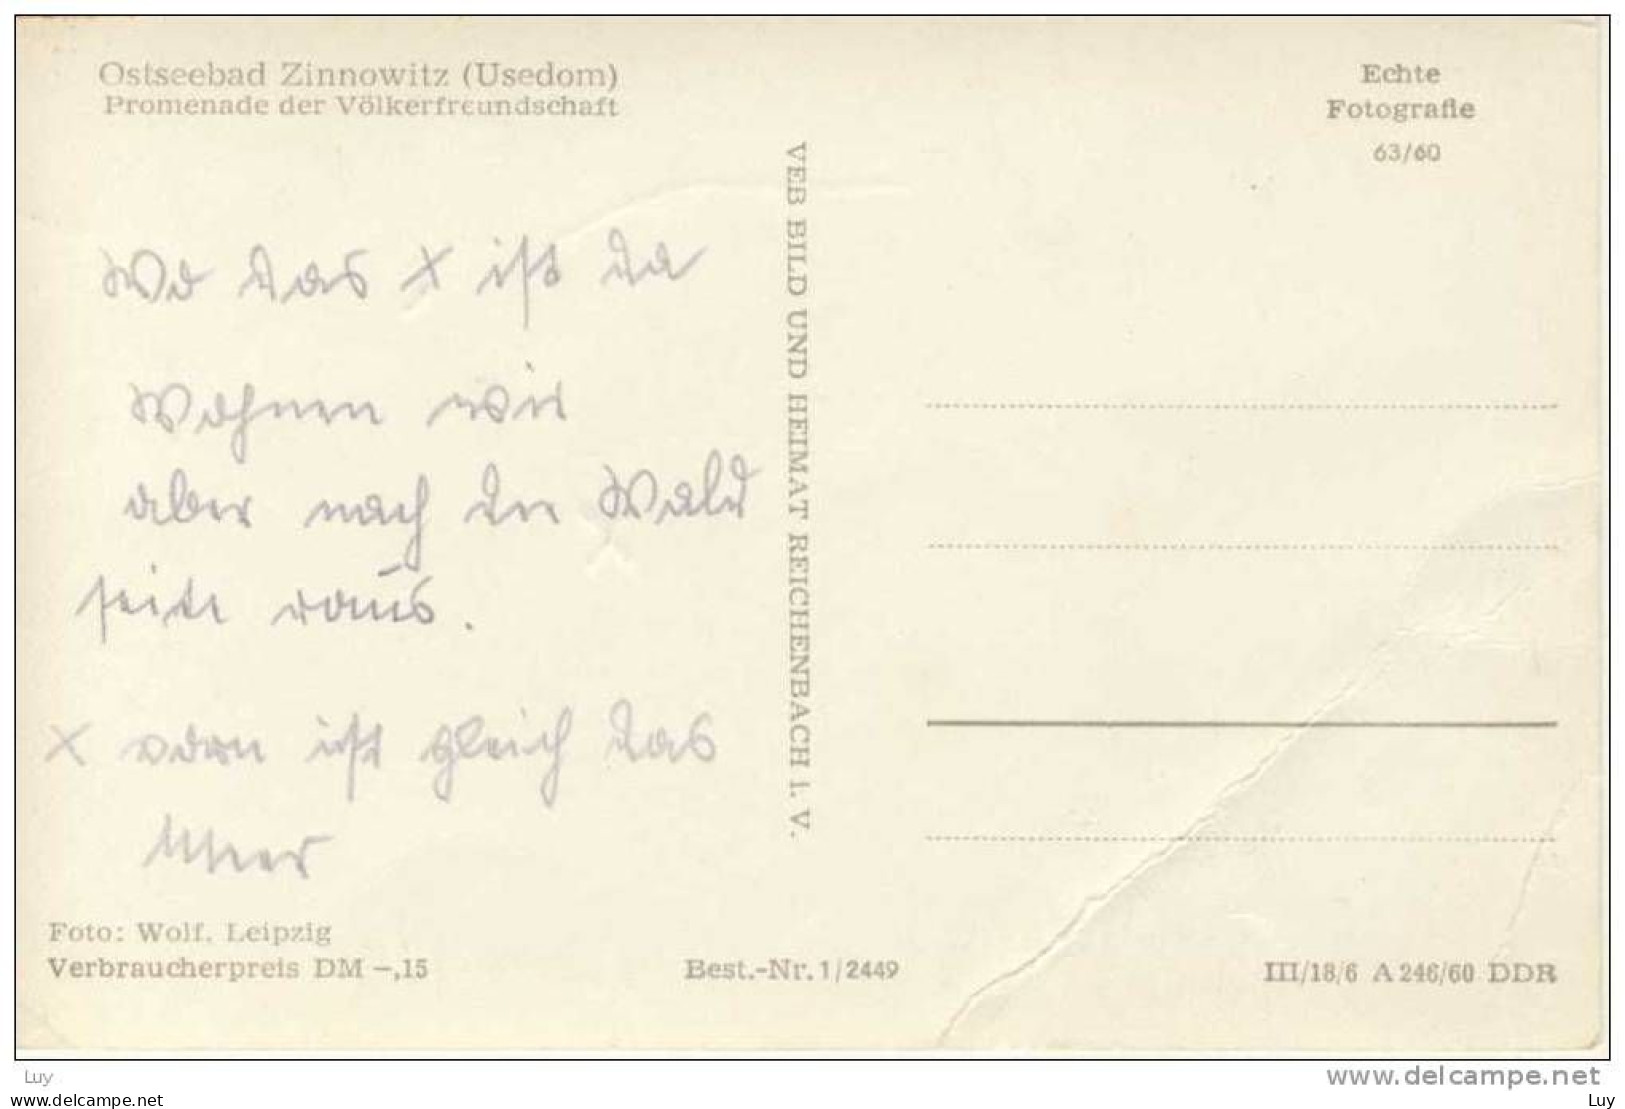 Ostseebad Zinnowitz (Usedom)
Promenade der Völkerfreundschaft
Echte
Fotografie
63/60
Wo das x ist da
Wohnen wir
aber nach der Wald
seite raus.
x vorn ist gleich das
Meer
VEB BILD UND HEIMAT REICHENBACH i. V.
Foto: Wolf, Leipzig
Verbraucherpreis DM –,15
Best.-Nr. 1/2449
III/18/6 A 246/60 DDR
Luy
www.delcampe.net
delcampe.net
Luy